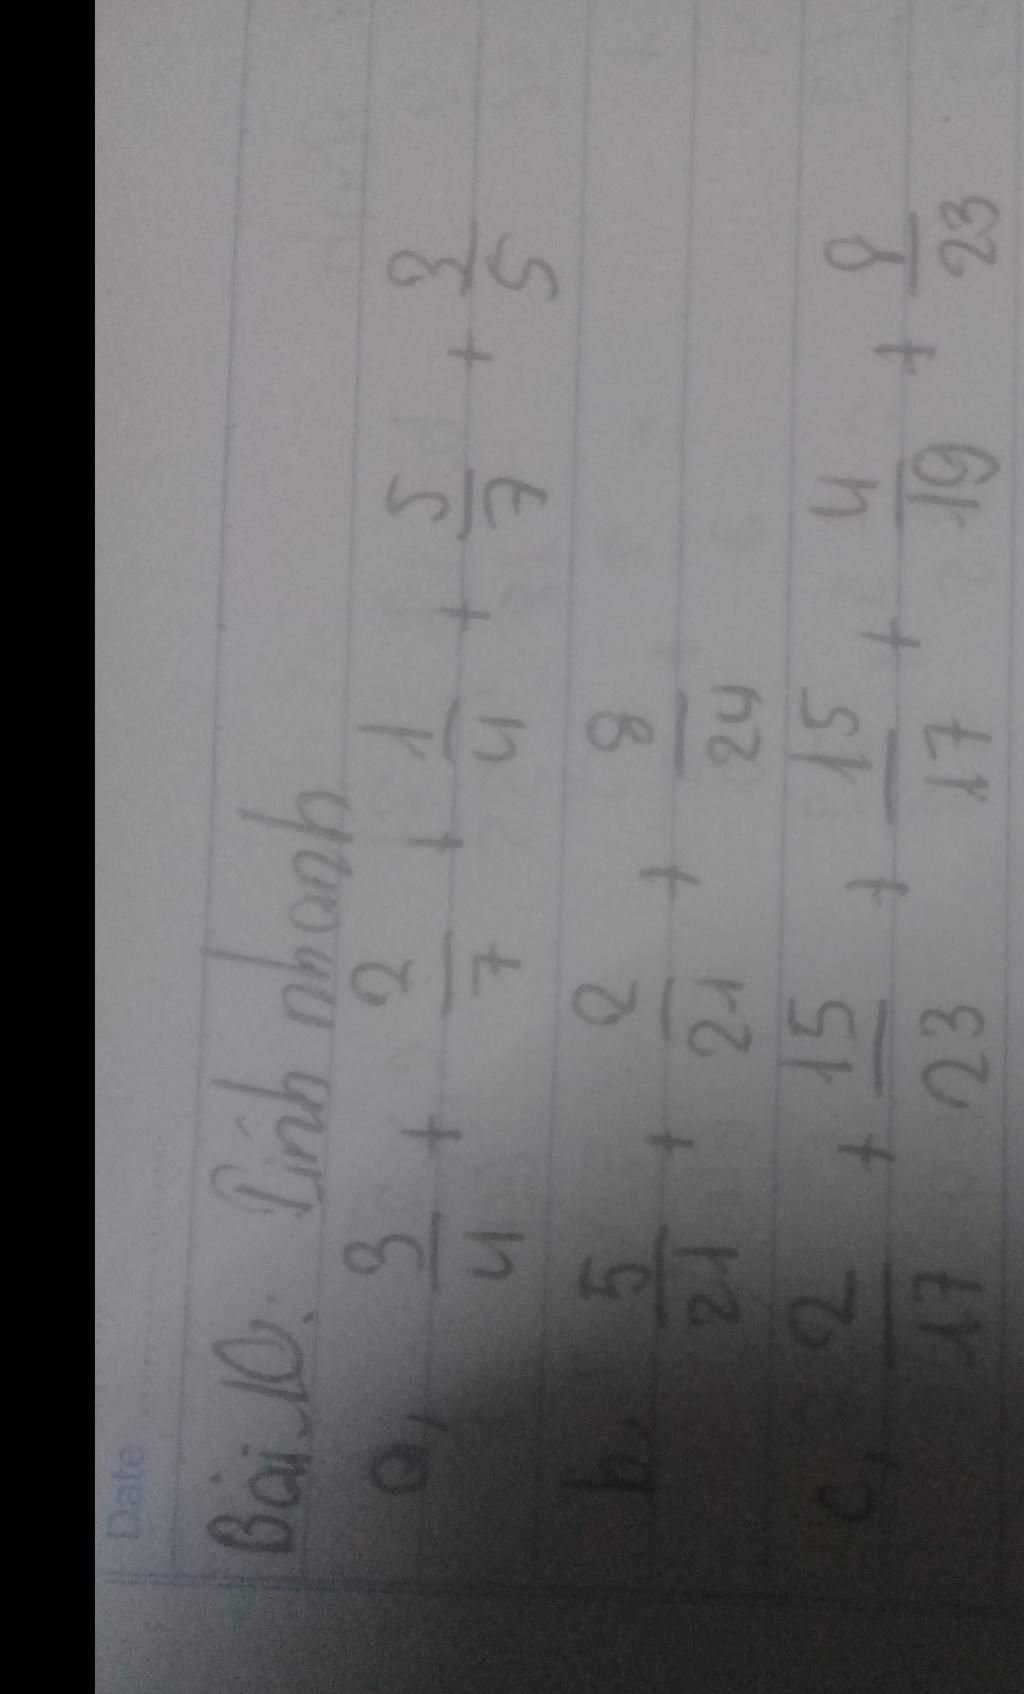 Date
Bài 10: Tính nhanh
a, 3/4 + 2/7 + 1/4 + 5/7 + 3/5
b, 5/21 + 2/21 + 8/24
c, 2/17 + 15/23 + 15/17 + 4/19 + 8/23